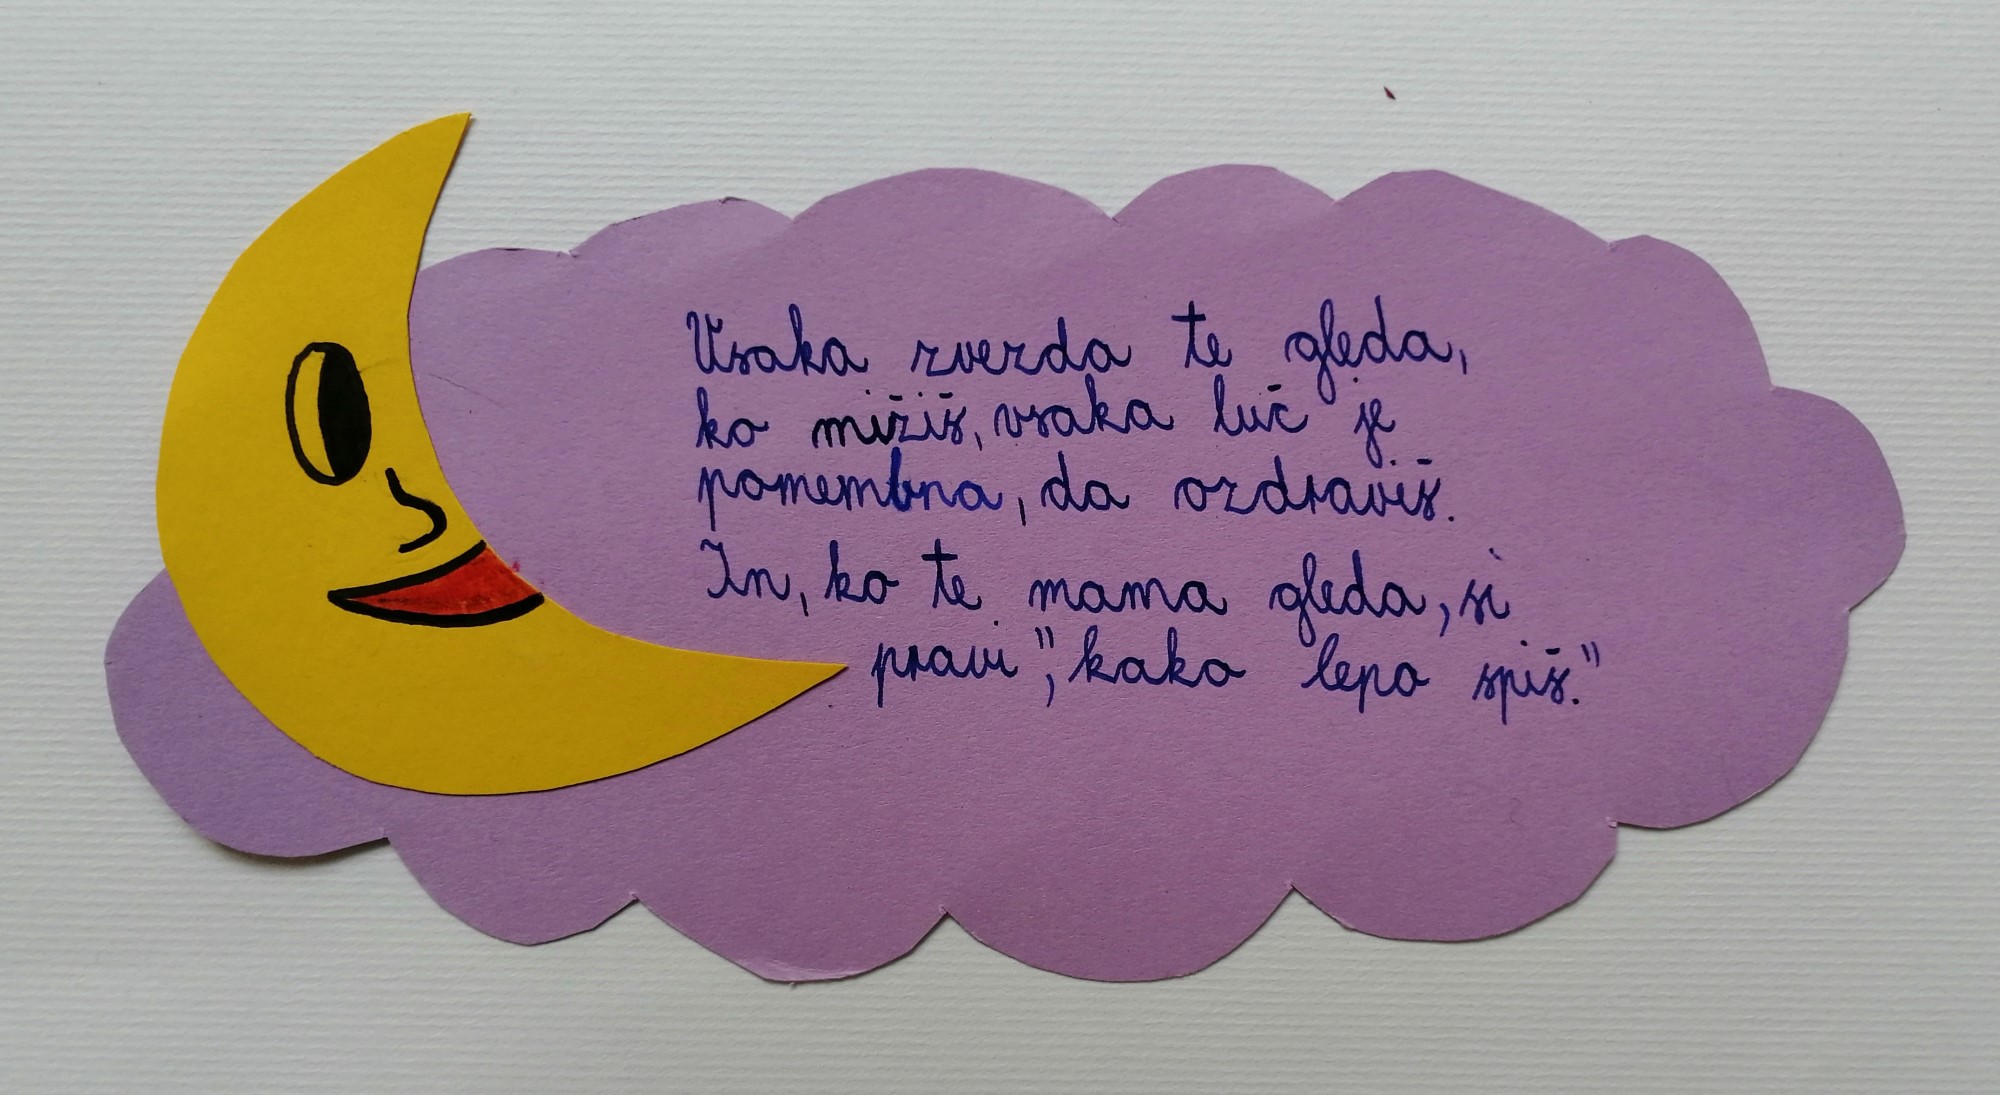 Vsaka zvezda te gleda,
ko mižiš, vsaka luč je
pomembna, da ozdraviš.
In, ko te mama gleda, si
pravi",, kako lepo spiš."